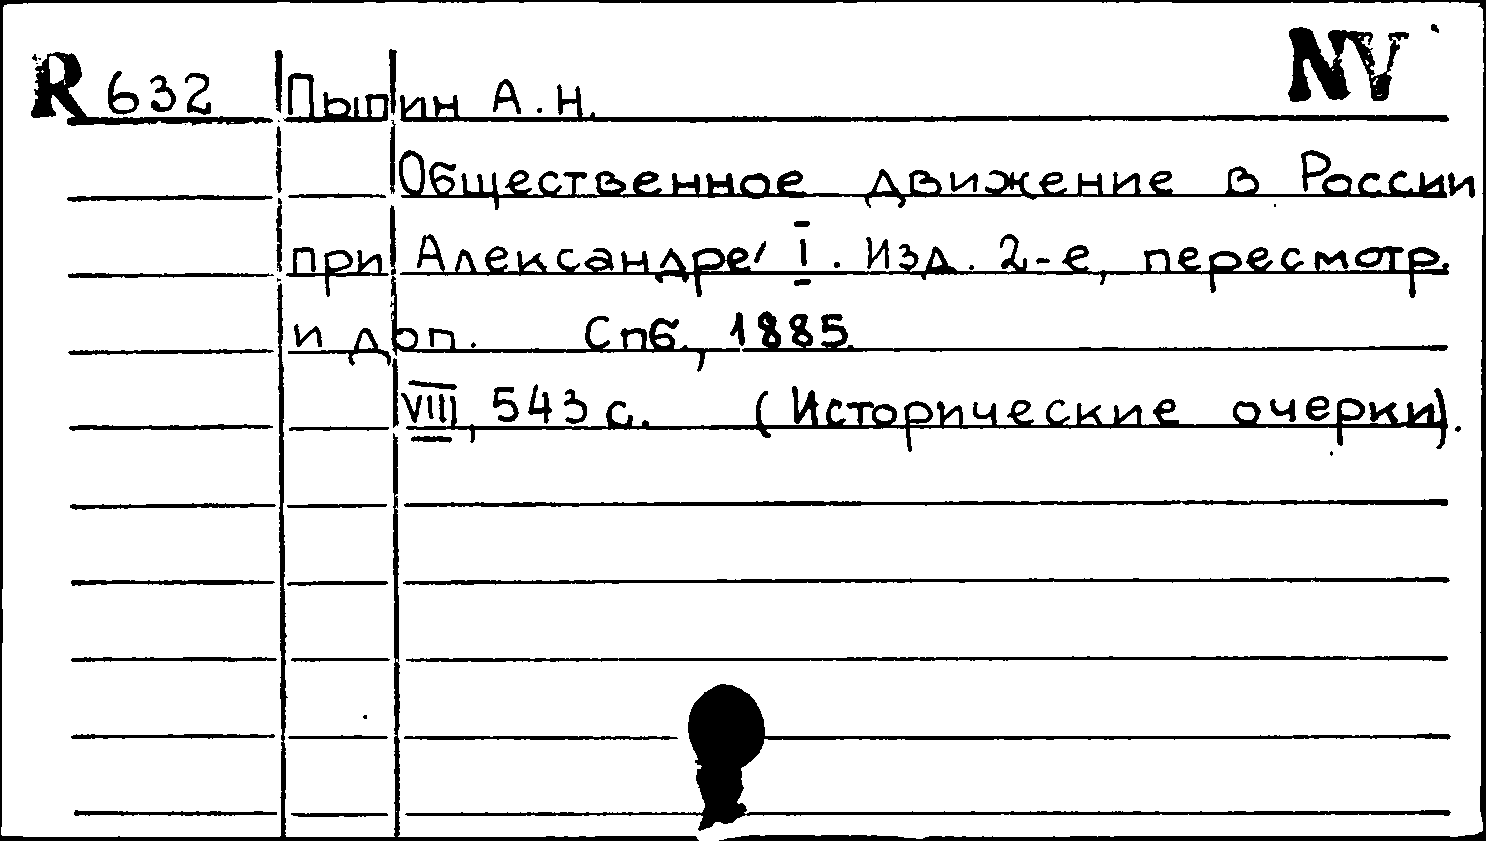 R 632 Пыпин А.Н. NV
Общественное движение в России
при Александре I. Изд. 2-е, пересмотр.
и доп. Спб., 1885.
VIII, 543 с. (Исторические очерки).